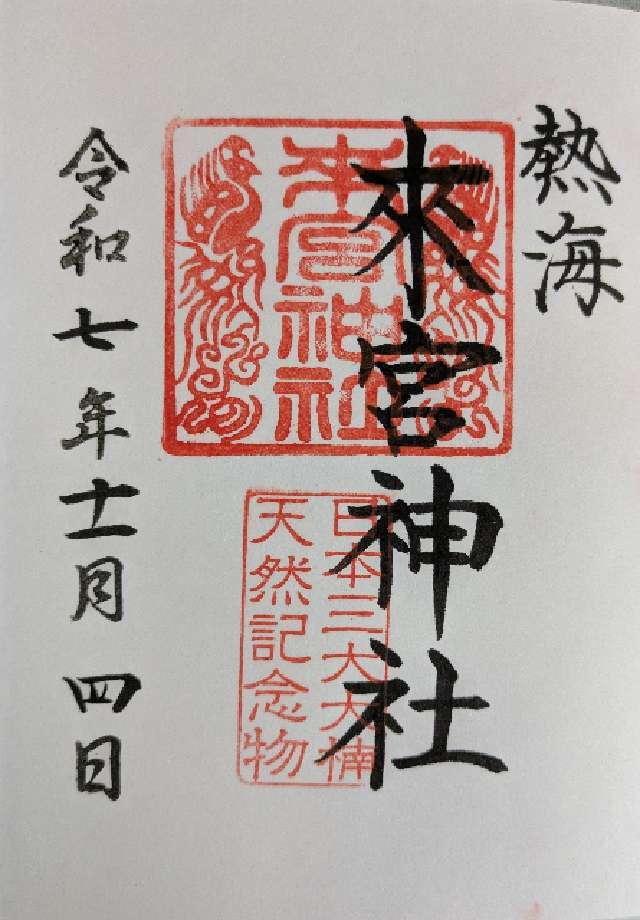 熱海
來宮神社
來宮神社
日本三大大楠
天然記念物
令和七年十一月四日